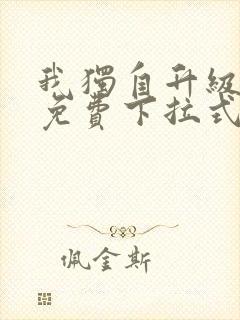 我獨自升級
免費下拉式
佩金斯